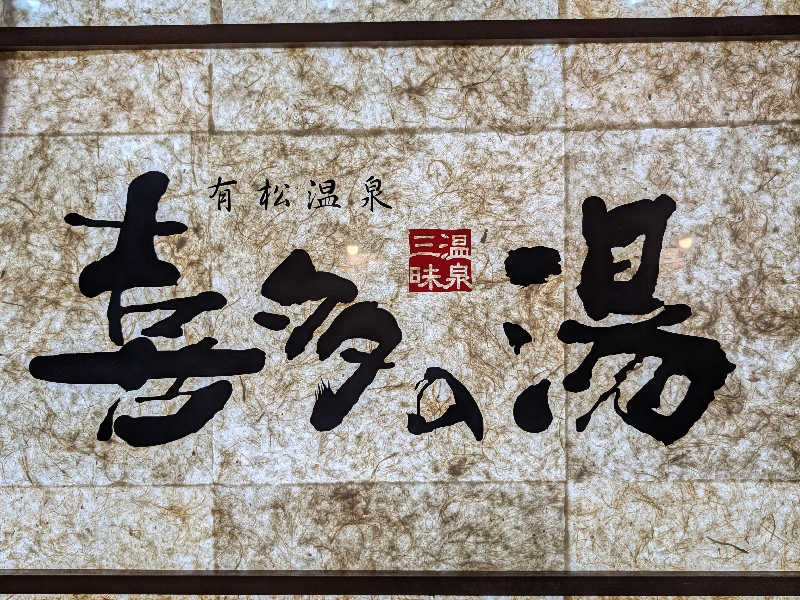 有松温泉
喜多の湯
温泉
三昧